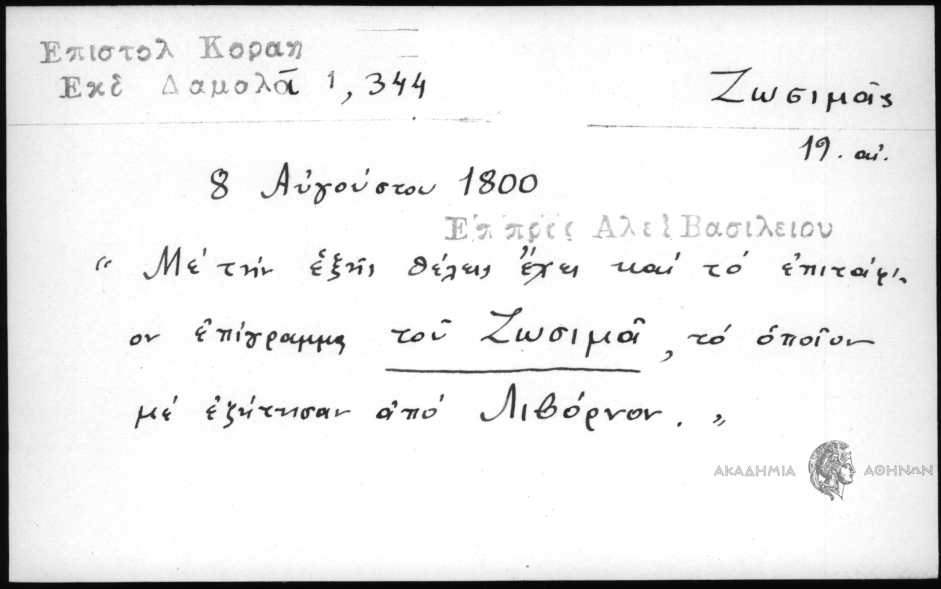 Επιστολ Κοραη
Εκδ Δαμαλᾶ 1, 344
Ζωσιμᾶς
19. αἰ.
8 Αὐγούστου 1800
Επ πρὸς Αλεξ Βασιλειου
“ Μέ τήν ἑξῆς θέλεις ἔχει καί τό ἐπιτάφι-
ον ἐπίγραμμα τοῦ Ζωσιμᾶ, τό ὁποῖον
μέ ἐζήτησαν ἀπό Λιβόρνον. „
ΑΚΑΔΗΜΙΑ ΑΘΗΝΩΝ